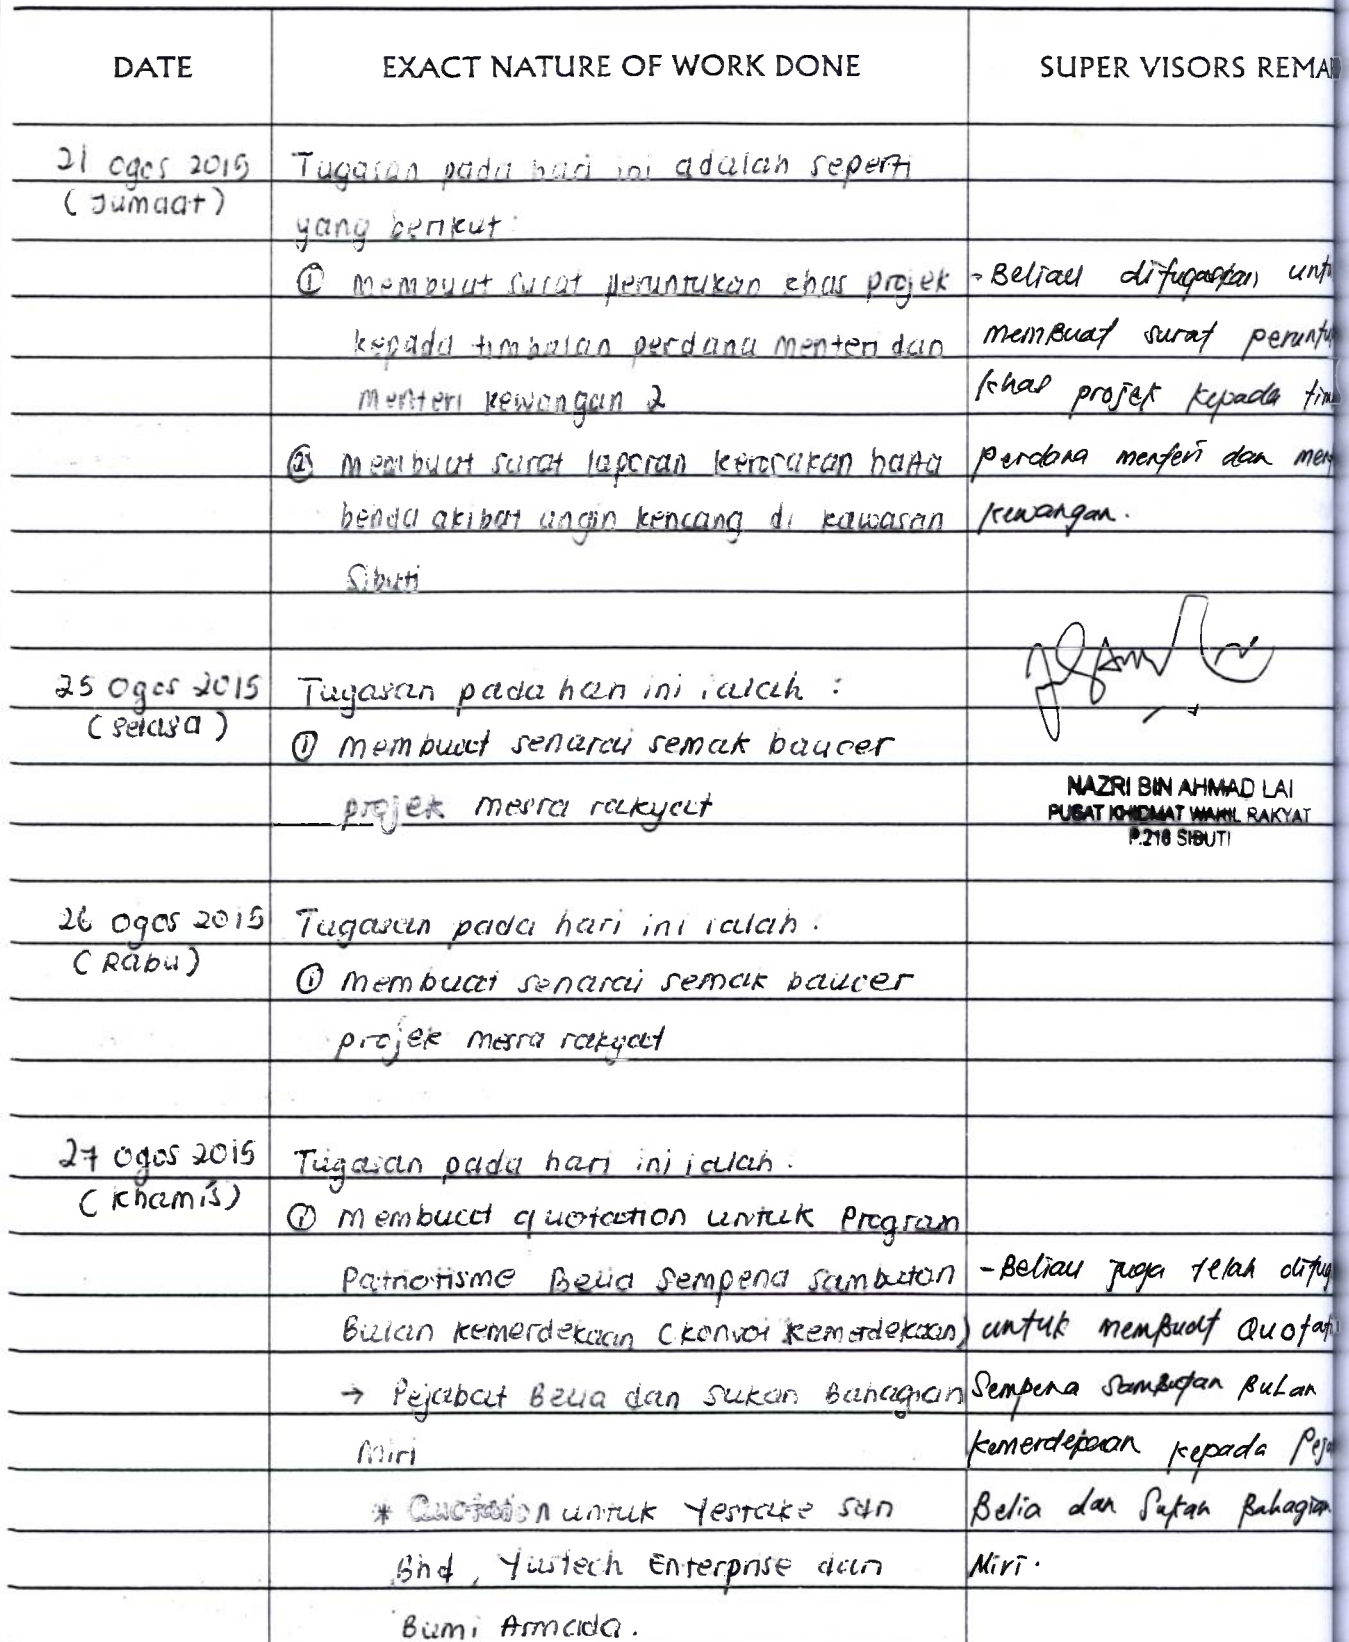 DATE
EXACT NATURE OF WORK DONE
SUPER VISORS REMA
21 Ogos 2015
(Jumaat)
Tugasan pada hari ini adalah seperti
yang berikut:
① Membuat surat peruntukan khas projek
kepada timbalan perdana menteri dan
menteri kewangan 2
② Membuat surat laporan kerosakan harta
benda akibat angin kencang di kawasan
Sibuti
- Beliau ditugaskan unt
membuat surat perunt
khas projek kepada tim
perdana menteri dan men
kewangan.
NAZRI BIN AHMAD LAI
PUSAT KHIDMAT WAKIL RAKYAT
P.216 SIBUTI
25 Ogos 2015
(Selasa)
Tugasan pada hari ini ialah :
① Membuat senarai semak baucer
projek mesra rakyat
26 Ogos 2015
(Rabu)
Tugasan pada hari ini ialah :
① Membuat senarai semak baucer
projek mesra rakyat
27 Ogos 2015
(Khamis)
Tugasan pada hari ini ialah :
① Membuat quotation untuk Program
Patriotisme Belia Sempena Sambutan
Bulan Kemerdekaan (Konvoi Kemerdekaan)
→ Pejabat Belia dan Sukan Bahagian
Miri
* Quotation untuk Yestake Sdn
Bhd, Yustech Enterprise dan
Bumi Armada.
- Beliau juga telah ditug
untuk membuat Quotat
Sempena Sambutan Bulan
Kemerdekaan kepada Peja
Belia dan Sukan Bahagian
Miri.